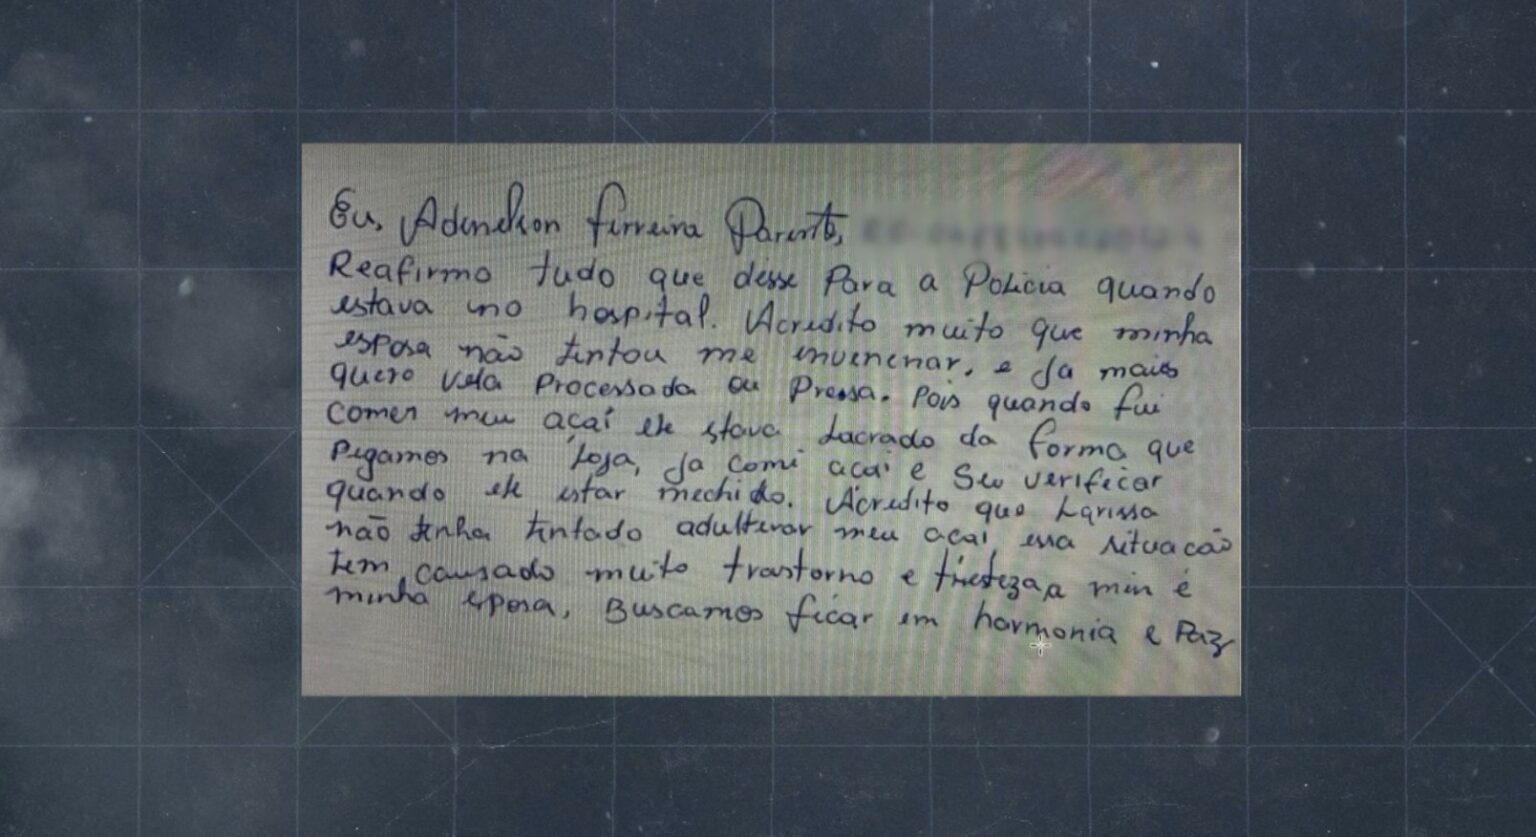 Eu, Adenelson Ferreira Parente,
Reafirmo tudo que desse Para a Policia quando
estava no hospital. Acredito muito que minha
esposa não tentou me envenenar, e Ja mais
quero vela Processada ou Pressa. Pois quando fui
comer meu açaí ele stava Lacrado da forma que
Pegamos na Loja, Ja comi açaí e Seu verificar
quando ele estar mechido. Acredito que Larissa
não tenha tentado adulterar meu açaí essa situacão
tem causado muito trastorno e tristeza,a min é
minha esposa, Buscamos ficar em harmonia e Paz